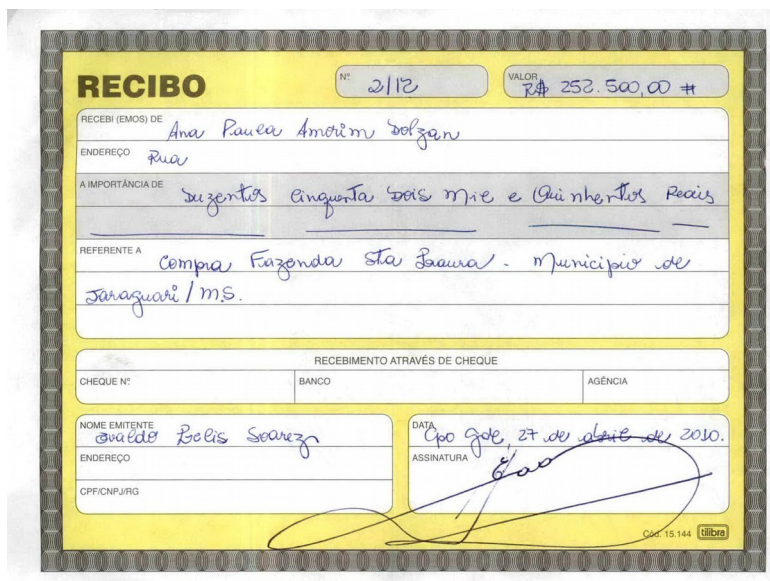 RECIBO
Nº 2/12
VALOR R$ 252.500,00 #
RECEBI (EMOS) DE Ana Paula Amorim Dolzan
ENDEREÇO Rua
A IMPORTÂNCIA DE Duzentos Cinquenta Dois Mil e Quinhentos Reais
REFERENTE A Compra Fazenda Sta Laura - Municipio de
Jaraguari / MS.
RECEBIMENTO ATRAVÉS DE CHEQUE
CHEQUE Nº BANCO AGÊNCIA
NOME EMITENTE Osvaldo Soarez
ENDEREÇO
CPF/CNPJ/RG
DATA Cpo Gde, 27 de abril de 2010.
ASSINATURA
Cód. 15.144 tilibra